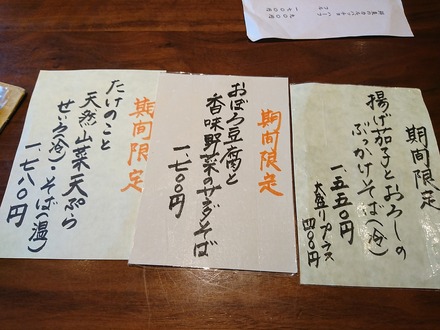 期間限定
揚げ茄子とおろしの
ぶっかけそば(冷)
一、五五〇円
大盛りプラス
四〇〇円
期間限定
おぼろ豆腐と
香味野菜のサラダそば
一、七〇〇円
期間限定
たけのこと
天然山菜天ぷら
せいろ(冷)・そば(温)
一、七八〇円